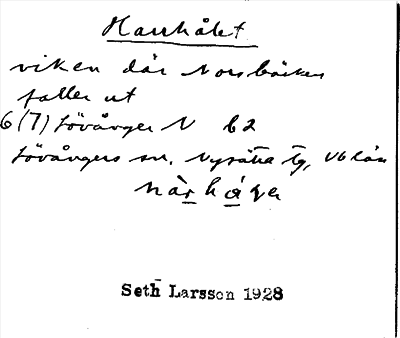 Harrhålet
viken där Norsbäcken
faller ut
6(7) Lövånger N b2
Lövångers sn. Nysätra tg, Vb län
Seth Larsson 1928